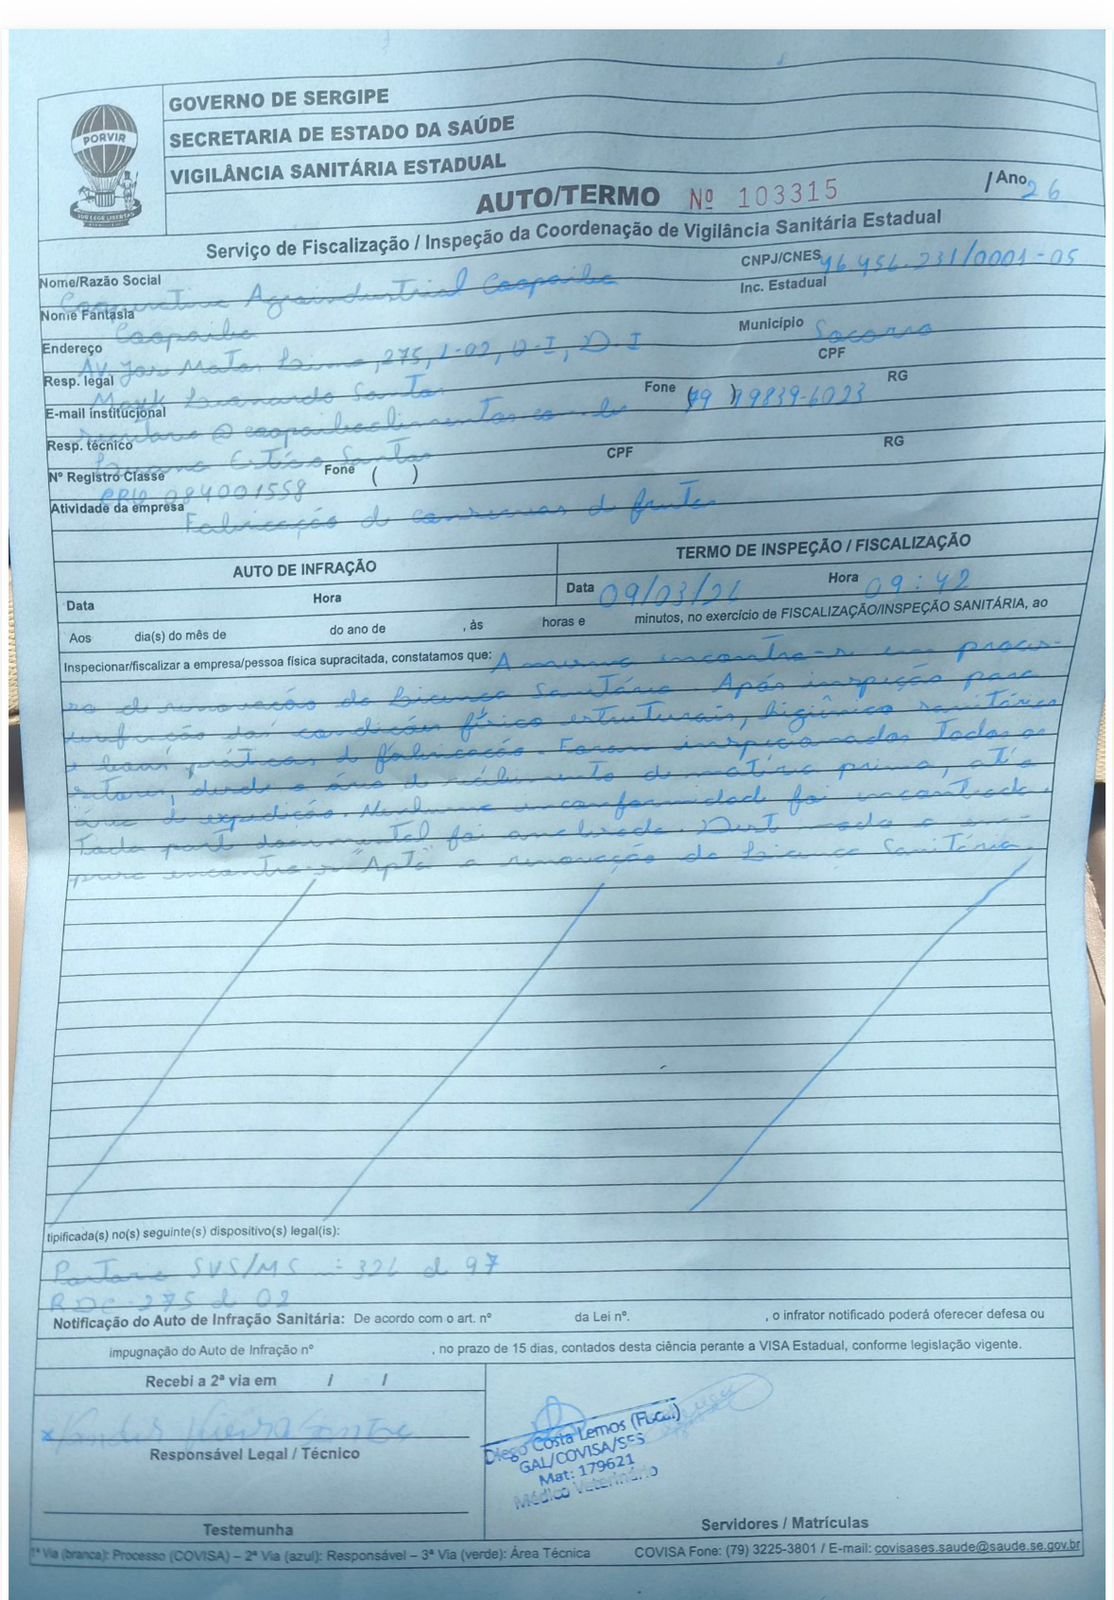 PORVIR
SUB LEGE LIBERTAS
GOVERNO DE SERGIPE
SECRETARIA DE ESTADO DA SAÚDE
VIGILÂNCIA SANITÁRIA ESTADUAL
AUTO/TERMO Nº 103315 / Ano 26
Serviço de Fiscalização / Inspeção da Coordenação de Vigilância Sanitária Estadual
Nome/Razão Social CNPJ/CNES 46.456.231/0001-05
Cooperativa Agroindustrial Coopaiba Inc. Estadual
Nome Fantasia
Coopaiba Município Socorro
Endereço
Av. José Matos Lima, 275, L-02, D-I, D.I CPF
Resp. legal
Mayk Leonardo Santos Fone (79) 99839-6023 RG
E-mail institucional
@coopaibaalimentos.com.br
Resp. técnico CPF RG
Santos
Nº Registro Classe Fone ( )
084001558
Atividade da empresa
Fabricação de conservas de frutas
AUTO DE INFRAÇÃO TERMO DE INSPEÇÃO / FISCALIZAÇÃO
Data Hora Data 09/03/26 Hora 09:42
Aos dia(s) do mês de do ano de , às horas e minutos, no exercício de FISCALIZAÇÃO/INSPEÇÃO SANITÁRIA, ao
Inspecionar/fiscalizar a empresa/pessoa física supracitada, constatamos que: A mesma encontra-se em proces-
so de renovação da Licença Sanitária. Após inspeção para
verificação das condições físico estruturais, higiênico sanitárias
e boas práticas de fabricação. Foram inspecionados todos os
setores, desde a área de recebimento de matéria prima, até a
área de expedição. Nenhuma inconformidade foi encontrada.
Toda parte documental foi analisada. Deste modo a em-
presa encontra-se "Apta" a renovação da Licença Sanitária.
tipificada(s) no(s) seguinte(s) dispositivo(s) legal(is):
Portaria SVS/MS nº 326 de 97
RDC 275 de 02
Notificação do Auto de Infração Sanitária: De acordo com o art. nº da Lei nº. , o infrator notificado poderá oferecer defesa ou
impugnação do Auto de Infração nº , no prazo de 15 dias, contados desta ciência perante a VISA Estadual, conforme legislação vigente.
Recebi a 2ª via em / /
x Vieira Santos
Responsável Legal / Técnico
Diego Costa Lemos (Fiscal)
GAL/COVISA/SES
Mat: 179621
Médico Veterinário
Testemunha
Servidores / Matrículas
1ª Via (branca): Processo (COVISA) – 2ª Via (azul): Responsável – 3ª Via (verde): Área Técnica COVISA Fone: (79) 3225-3801 / E-mail: covisases.saude@saude.se.gov.br